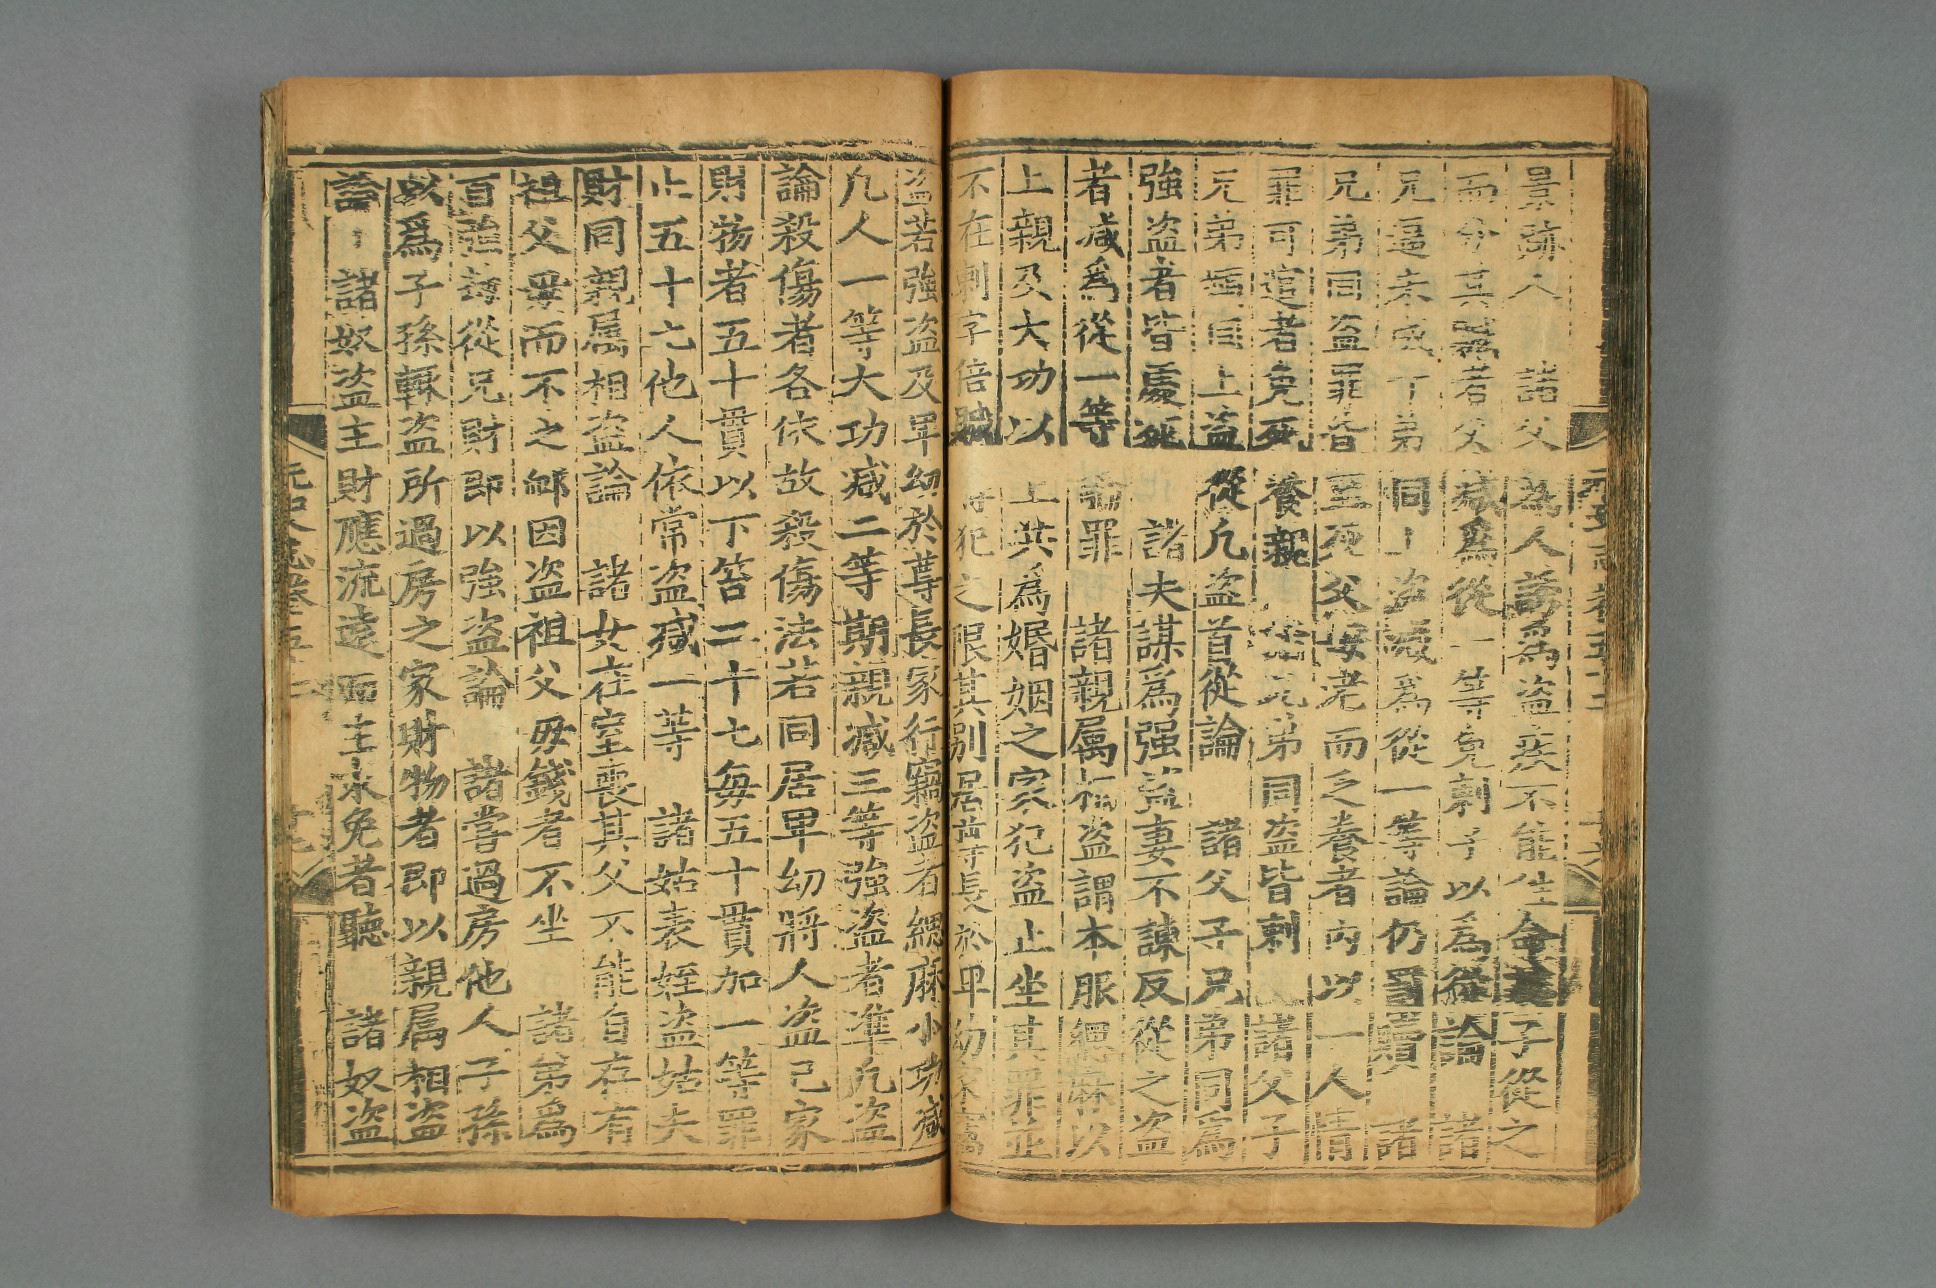 景跡人　諸父爲人誘爲盜疾不能坐命其子從之
而分其贓若父減爲從一等免刺子以爲從論　諸
兄逼未成丁弟同上盜減爲從一等論仍罰贖　諸
兄弟同盜罪皆至死父母老而乏養者內以一人情
罪可逭者免死養親　諸兄弟同盜皆刺　諸父子
兄弟　自上盜從凡盜首從論　諸父子兄弟同爲
強盜者皆處死　諸夫謀爲强盜妻不諫反從之盜
者減爲從一等論罪　諸親屬相盜謂本服緦麻以
上親及大功以上共爲婚姻之家犯盜止坐其罪並
不在刺字倍贓再犯之限其別居尊長於卑幼家竊
盜若強盜及卑幼於尊長家行竊盜者緦麻小功減
凡人一等大功減二等期親減三等強盜者準凡盜
論殺傷者各依故殺傷法若同居卑幼將人盜己家
財物者五十貫以下笞二十七每五十貫加一等罪
止五十七他人依常盜減一等　諸姑表姪盜姑夫
財同親屬相盜論　諸女在室喪其父不能自存有
祖父母而不之䘏因盜祖父母錢者不坐　諸弟爲
首強　從兄財即以強盜論　諸嘗過房他人子孫
以爲子孫輒盜所過房之家財物者即以親屬相盜
論　諸奴盜主財應流遠而主求免者聽　諸奴盜
元史志卷五十二